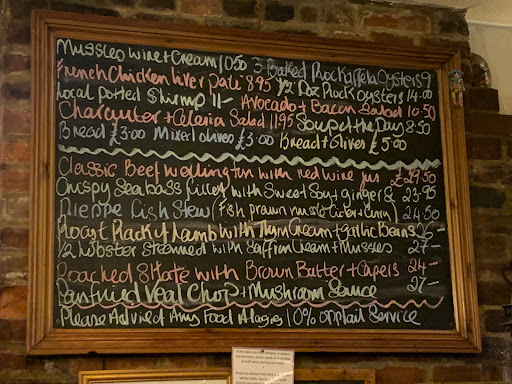 Mussles wine + Cream 10.50 3 Baked Rockafela Oysters 9
French Chicken Liver Pate 8.95 1/2 Doz Rock oysters 14.00
Local Potted Shrimp 11- Avocado + Bacon Salad 10.50
Charcuter + Celeria Salad 11.95 Soup of the Day 8.50
Bread £3.00 Mixed olives £3.00 Bread + Olives £5.00
Classic Beef wellington with red wine jus £29.50
Crispy Seabass fillet with Sweet Soy + ginger £23.95
Dieppe Fish Stew (Fish prawn mussle Cider + Curry) 24.50
Roast Rack of Lamb with Thym Cream + garlic Beans 26-
1/2 lobster steamed with Saffron Cream + Mussles 27-
Poached Skate with Brown Butter + Capers 24-
Panfried Veal Chop + Mushroom Sauce 27-
Please Advised Any Food Alagies 10% optail Service